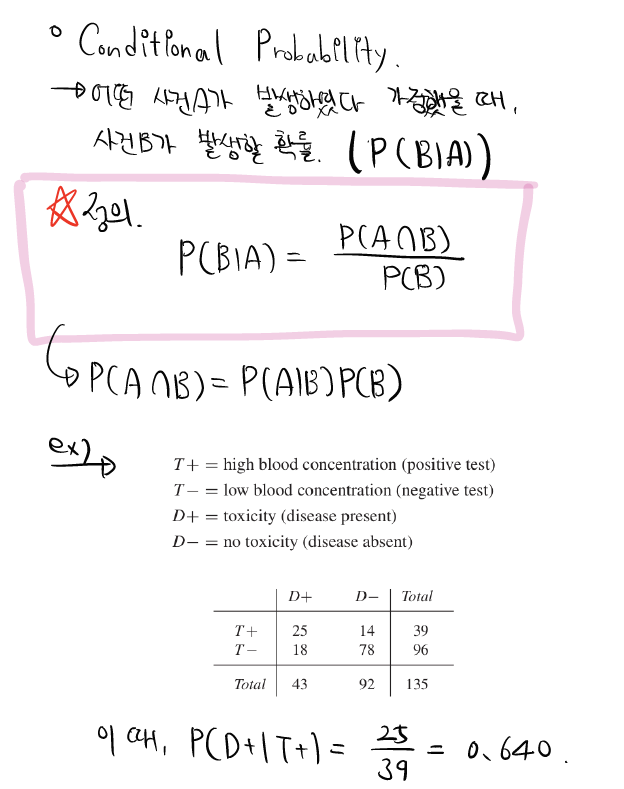 ° Conditional Probability.
→ 어떤 사건A가 발생하였다 가정했을 때,
사건B가 발생할 확률. (P(B|A))
☆ 정의.
P(B|A) = P(A∩B) / P(B)
↳ P(A∩B) = P(A|B)P(B)
ex)
T+ = high blood concentration (positive test)
T− = low blood concentration (negative test)
D+ = toxicity (disease present)
D− = no toxicity (disease absent)
D+ D− Total
T+ 25 14 39
T− 18 78 96
Total 43 92 135
이 때, P(D+|T+) = 25 / 39 = 0.640.